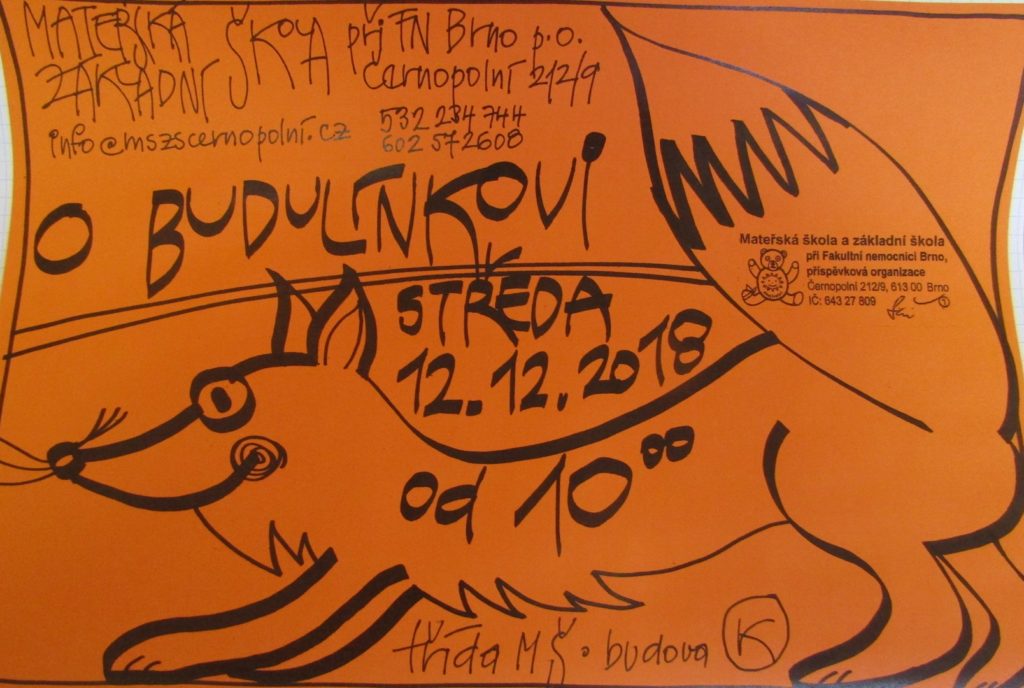 MATEŘSKÁ ŠKOLA při FN Brno p.o.
ZÁKLADNÍ černopolní 212/9
info@mszscernopolní.cz 532 234 744
602 572608
O BUDULÍNKOVI
STŘEDA
12.12.2018
od 10 00
třída MŠ • budova K
Mateřská škola a základní škola
při Fakultní nemocnici Brno,
příspěvková organizace
Černopolní 212/9, 613 00 Brno
IČ: 643 27 809